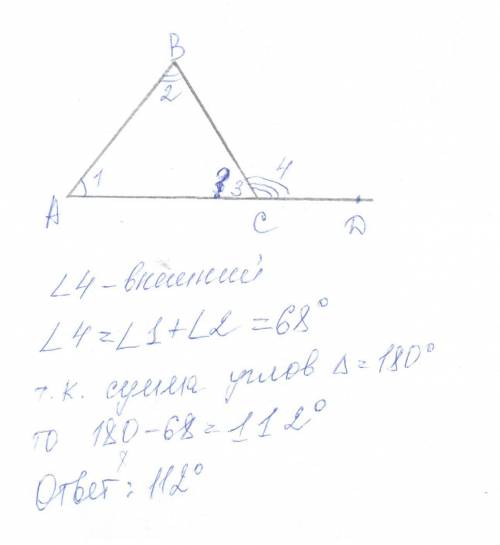 B
2
1
3
4
A
C
D
∠4 - внешний
∠4 = ∠1 + ∠2 = 68°
т.к. сумма углов Δ = 180°
то 180 - 68 = 112°
Ответ: 112°